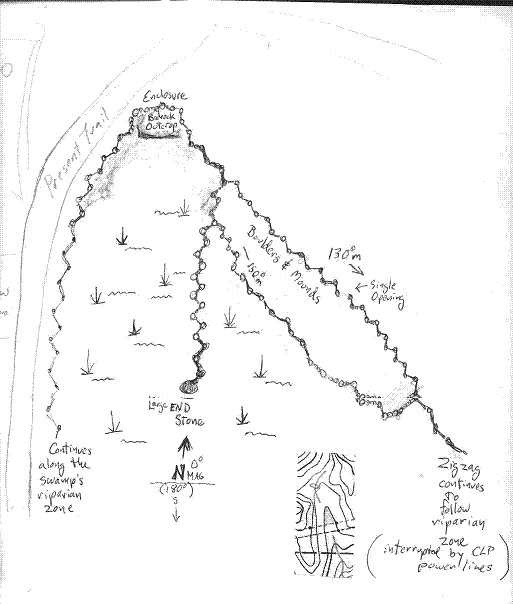 Enclosure
Bedrock
Outcrop
Present Trail
130°m
Boulders & Mounds
150°m
Single
Opening
Large END
Stone
N 0°
MAG
(180°)
S
Continues
along the
swamp's
riparian
zone
Zigzag
continues
to
follow
riparian
zone
(interrupted by CLP
power lines)